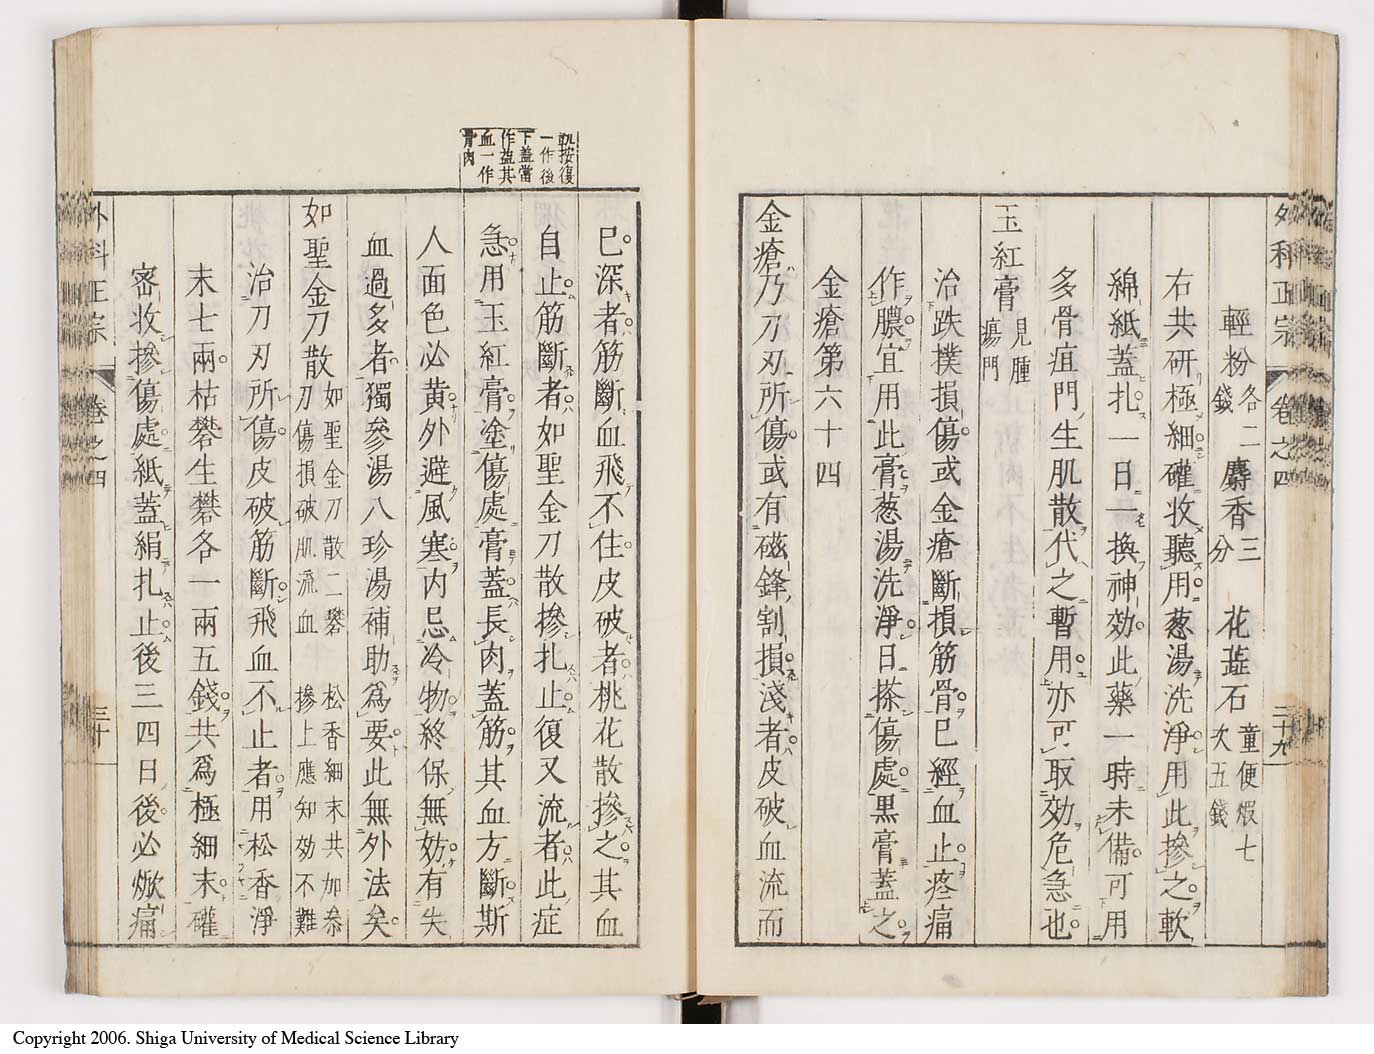 外科正宗 卷之四 二十九
輕粉各二錢 麝香三分 花蕋石童便煆七次五錢
右共研極細礶收聽用葱湯洗淨用此摻之軟
綿紙蓋扎一日一換神効此藥一時未備可用
多骨疽門生肌散代之暫用亦可取効危急也
玉紅膏見腫瘍門
治跌撲損傷或金瘡斷損筋骨已經血止疼痛
作膿宜用此膏葱湯洗淨日搽傷處黑膏蓋之
金瘡第六十四
金瘡乃刀刃所傷或有磁鋒割損淺者皮破血流而
按復
一作後
下蓋當
作益其
血一作
骨肉
已深者筋斷血飛不住皮破者桃花散摻之其血
自止筋斷者如聖金刀散摻扎止復又流者此症
急用玉紅膏塗傷處膏蓋長肉蓋筋其血方斷斯
人面色必黃外避風寒内忌冷物終保無妨有失
血過多者獨參湯八珍湯補助爲要此無外法矣
如聖金刀散如聖金刀散二礬 松香細末共加叅
刀傷損破肌流血 摻上應知効不難
治刀刃所傷皮破筋斷飛血不止者用松香淨
末七兩枯礬生礬各一兩五錢共爲極細末礶
密收摻傷處紙蓋絹扎止後三四日後必焮痛
外科正宗 卷之四 三十
Copyright 2006. Shiga University of Medical Science Library